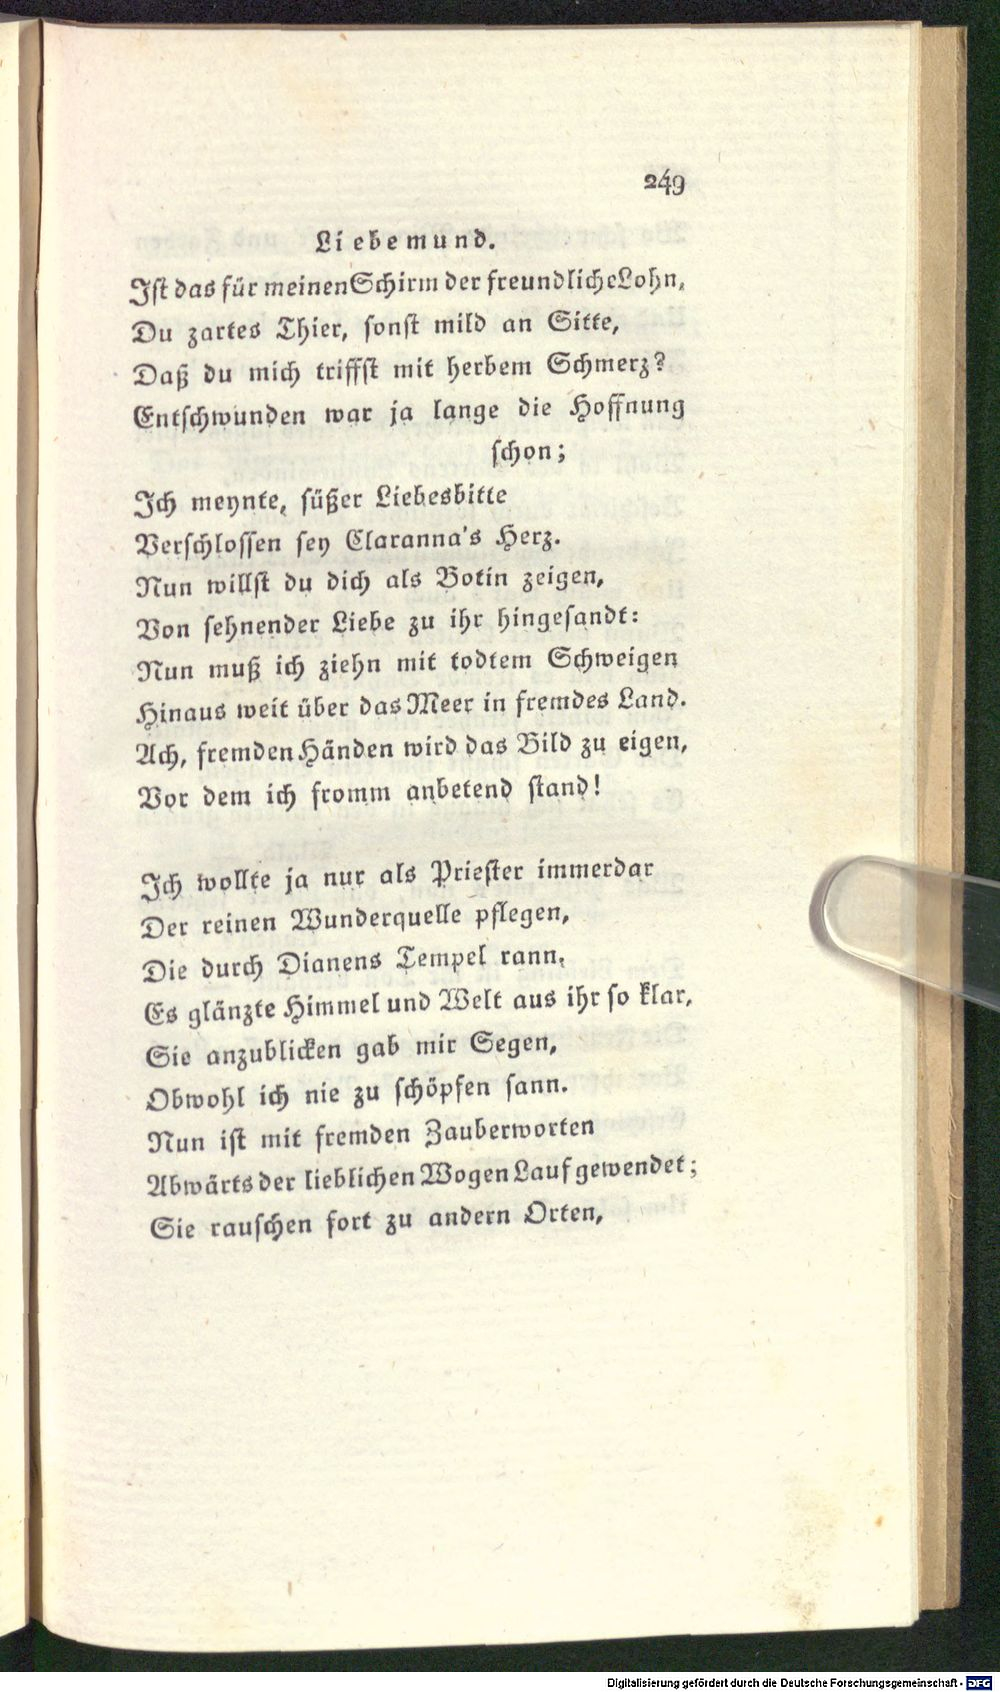 249
Liebemund.
Ist das für meinen Schirm der freundliche Lohn,
Du zartes Thier, sonst mild an Sitte,
Daß du mich triffst mit herbem Schmerz?
Entschwunden war ja lange die Hoffnung
schon;
Ich meynte, süßer Liebesbitte
Verschlossen sey Claranna's Herz.
Nun willst du dich als Botin zeigen,
Von sehnender Liebe zu ihr hingesandt:
Nun muß ich ziehn mit todtem Schweigen
Hinaus weit über das Meer in fremdes Land.
Ach, fremden Händen wird das Bild zu eigen,
Vor dem ich fromm anbetend stand!
Ich wollte ja nur als Priester immerdar
Der reinen Wunderquelle pflegen,
Die durch Dianens Tempel rann,
Es glänzte Himmel und Welt aus ihr so klar,
Sie anzublicken gab mir Segen,
Obwohl ich nie zu schöpfen sann.
Nun ist mit fremden Zauberworten
Abwärts der lieblichen Wogen Lauf gewendet;
Sie rauschen fort zu andern Orten,
Digitalisierung gefördert durch die Deutsche Forschungsgemeinschaft - DFG